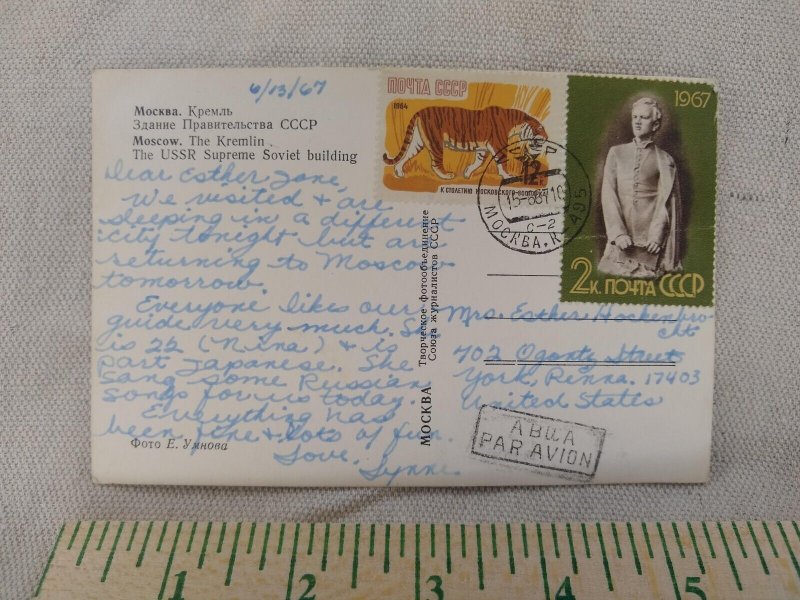 6/13/67
Москва. Кремль
Здание Правительства СССР
Moscow. The Kremlin
The USSR Supreme Soviet building
Dear Esther Jane,
We visited & are
sleeping in a different
city tonight but are
returning to Moscow
tomorrow.
Everyone likes our
guide very much. She
is 22 (Nina) & is
part Japanese. She
sang some Russian
songs for us today.
Everything has
been fine & lots of fun.
Love,
Lynne
Фото Е. Умнова
МОСКВА
Творческое фотообъединение
Союза журналистов СССР
ПОЧТА СССР
1964
12 к.
К СТОЛЕТИЮ МОСКОВСКОГО ЗООПАРКА
МОСКВА, К-495
1967
2 К. ПОЧТА СССР
Mrs. Esther
402 Street
York, Penna. 17403
United States
АВИА
PAR AVION
1 2 3 4 5